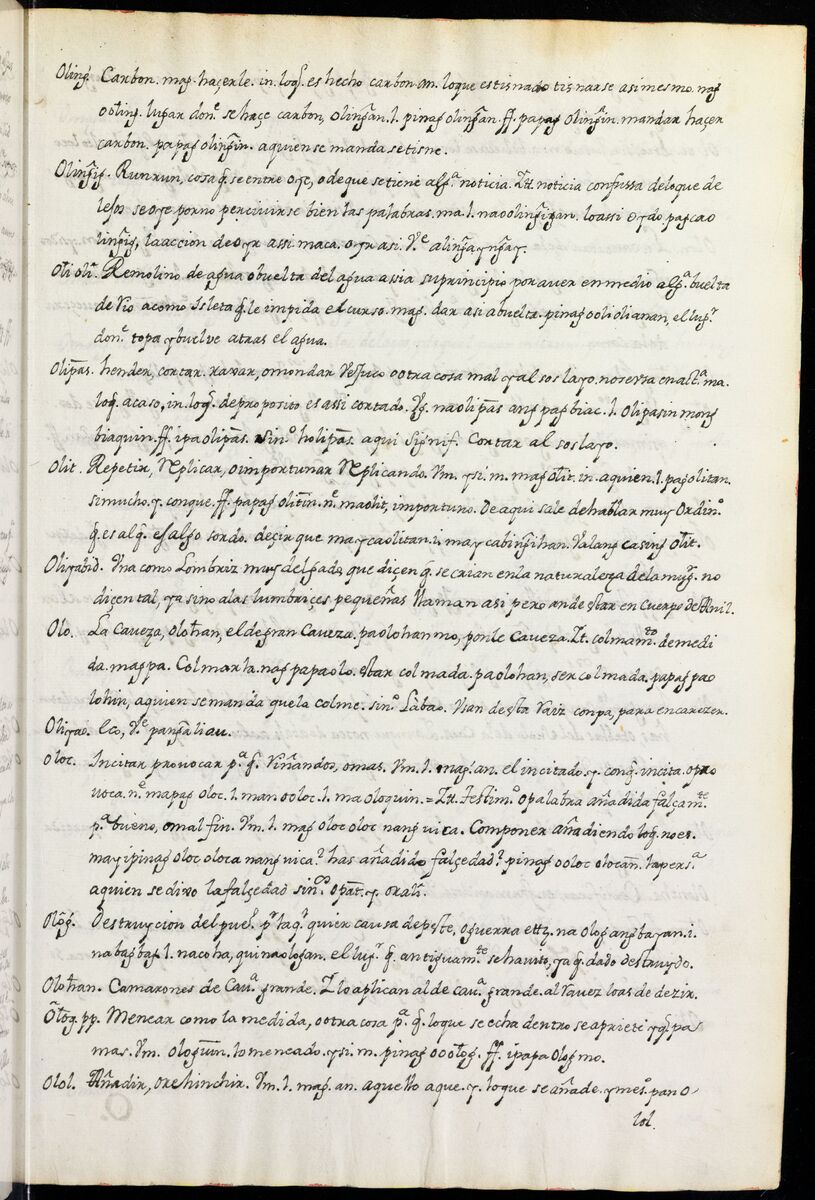 Oling̃. Carbon. mag. haçerle. in. loq̃. es hecho carbon. an. loque estisnado tisnarse asi mesmo. nag
ooling. lugar donᵉ. se haçe carbon, olingan. l. pinag olingan. ff. papag olingin. mandar haçer
carbon. papag olingin. aquien se manda se tisne.
Olingig. Runrun, cosa q̃. se entre oye, o de que se tiene algᵃ. noticia. It. noticia confussa deloque de
lejos se oye por no percivirse bien las palabras. ma. l. nao olingigan. lo assi oydo pag cao
lingig, la accion de oyr assi maca. oyr asi. Vᵉ alingayngay.
Oli oli. Remolino de agua o buelta del agua assia su principio por aver en medio algᵃ. buelta
de rio a como Isleta q̃. le impida el curso. mag. dar asi a buelta. pinag ooliolianan, el lugʳ.
donᵉ. topa y buelve atras el agua.
Olipas. hender, cortar. raxar, o mondar Vejuco o otra cosa mal y al soslayo. no se usa en actᵃ. ma.
loq̃. acaso, in. loq̃. de proposito es assi cortado. Vg. na olipas ang pag biac. l. olipasin mong
biaquin. ff. ipa olipas. sinᵒ. holipas. aqui signif. Cortar al soslayo.
Olit. Repetir, Replicar, o importunar Replicando. Vm. y si. m. mag olit. in. aquien. l. pagolitan.
si mucho. y. conque. ff. papag olitin. nᵉ. maolit, importuno. De aqui sale de hablar muy ordinᵒ.
q̃. es al q̃. es algo sordo. deçir que maycaolitan. i. may cabingihan. Valang casing olit.
Oliyabid. Vna como Lombriz muy delgada, que diçen q̃. se crian en la naturaleza de la mugʳ. no
diçen tal, ya sino a las lumbriçes pequeñas llaman asi pero an de star en cuerpo de Anil.
Olo. La Caveza, olohan, el de gran Caveza. paolohan mo, ponle Caveza. It. colmamᵗᵒ. de medi
da. mag pa. Colmarla. nag papaolo. star colmada. paolohan, ser colmada. papag pao
lohin, aquien se manda que la colme. sinᵒ. Labao. Vsan desta raiz con pa, para encarezer.
Oliyao. Eco, Vᵉ pangaliau.
Oloc. Incitar provocar pᵃ. q̃. riñandos, o mas. Vm. l. mag. an. el incitado. y. conq̃. incita. o pro
voca. nᵉ. mapag oloc. l. man ooloc. l. ma oloquin. = It. testimᵒ. o palabra añadida falçamᵗᵉ.
pᵃ bueno, o mal fin. Vm. l. mag oloc oloc nang vica. Componer añadiendo loq̃. no es.
may ipinag oloc oloc ca nang vica? has añadido falçedad? pinag ooloc olocan. la persᵃ.
aquien se dixo la falçedad sinᵒˢ. opat. y. orali.
Olog. Destruycion del pueᵇ. pʳ laqʳ quier causa de peste, o guerra ettᶻ. na olog ang bayan. i.
nabagbag l. nacoha, quinaologan. el lugʳ. q̃. antiguamᵗᵉ. se havito, ya q̃. dado destruydo.
Olohan. Camarones de Cavᵃ. grande. Z lo aplican al de cavᵃ. grande. al ravez lo as de dezir.
Olog. pp. Menear como la medida, o otra cosa pᵃ. q̃. loque se echa dentro se apriete y q̃pa
mas. Vm. ologuin. lo meneado. y si. m. pinag ooolog. ff. ipapa olog mo.
Olol. Añadir, o rehinchir. Vm. l. mag. an. aquello aque. y. loque se añade. y mesᵒ. pan o
lol.